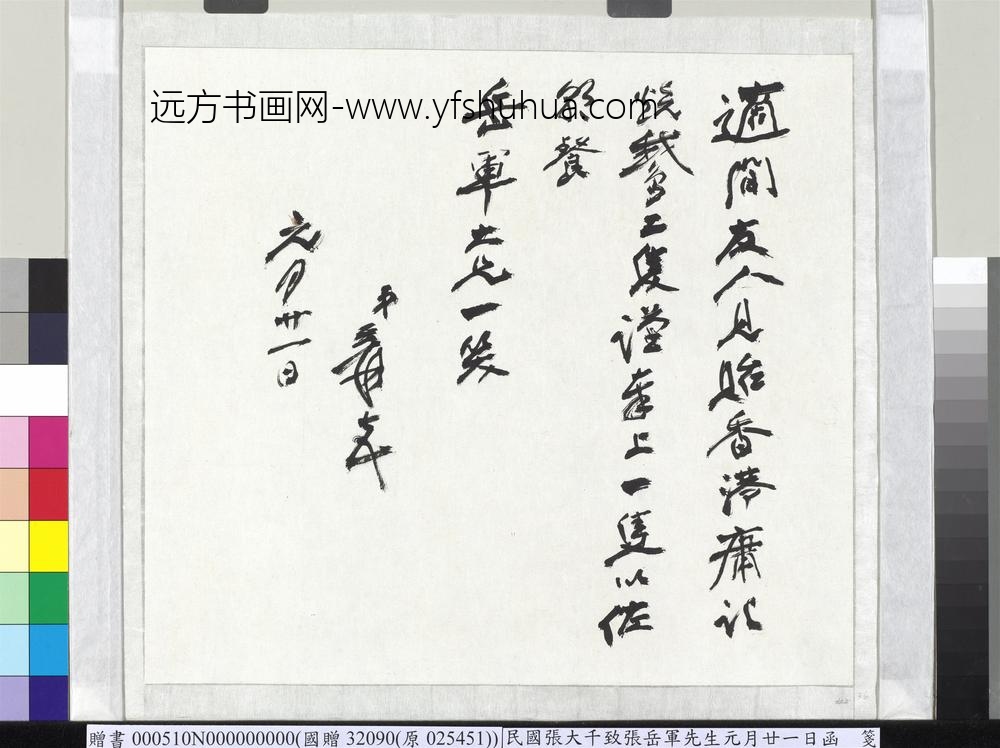 適間友人見貽香港鏞記
燒鵝二隻謹奉上一隻以佐
餐
岳軍大兄一笑
弟爰奉
元月廿一日
远方书画网-www.yfshuhua.com
贈書 000510N000000000(國贈 32090(原 025451))
民國張大千致張岳軍先生元月廿一日函 箋